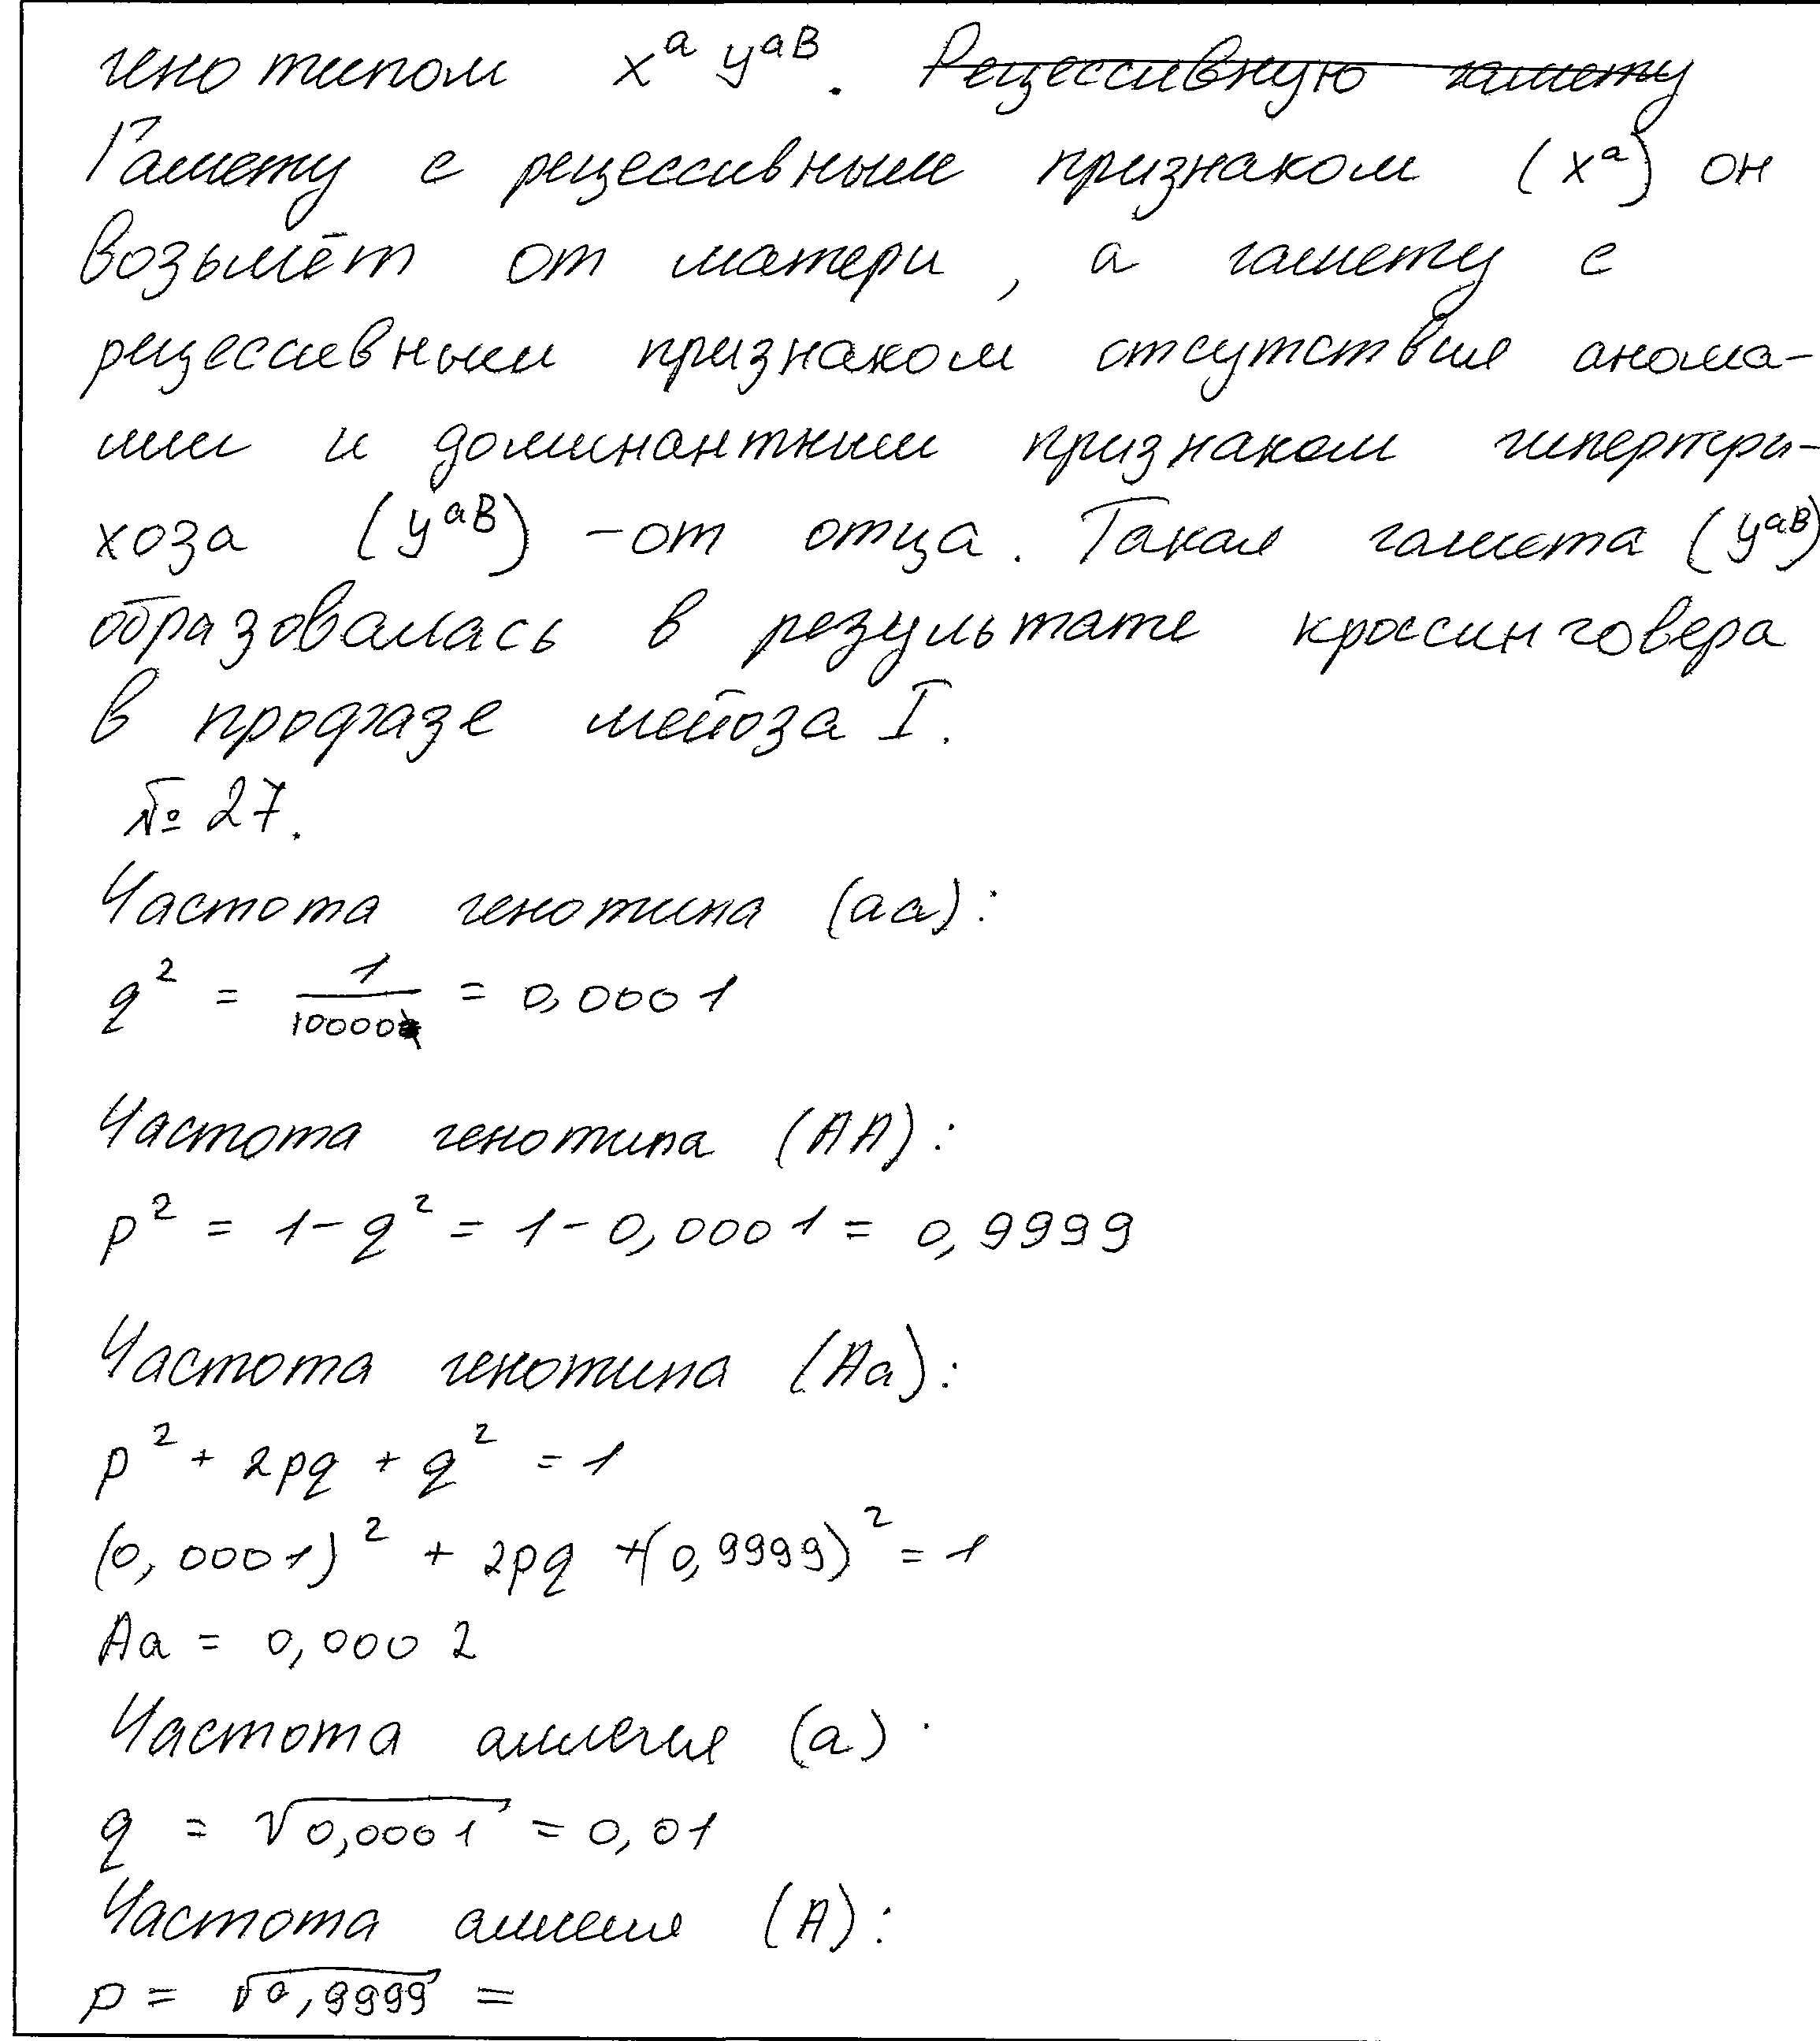 генотипом xᵃ yᵃᴮ. Рецессивную гамету
Гамету с рецессивным признаком (xᵃ) он
возьмёт от матери, а гамету с
рецессивным признаком отсутствия анома-
лии и доминантным признаком гипертри-
хоза (yᵃᴮ) - от отца. Такая гамета (yᵃᴮ)
образовалась в результате кроссинговера
в профазе мейоза I.
№ 27.
Частота генотипа (aa):
q² = 1/10000 = 0,0001
Частота генотипа (AA):
p² = 1 - q² = 1 - 0,0001 = 0,9999
Частота генотипа (Aa):
p² + 2pq + q² = 1
(0,0001)² + 2pq + (0,9999)² = 1
Aa = 0,0002
Частота аллеля (a):
q = √0,0001 = 0,01
Частота аллеля (A):
p = √0,9999 =